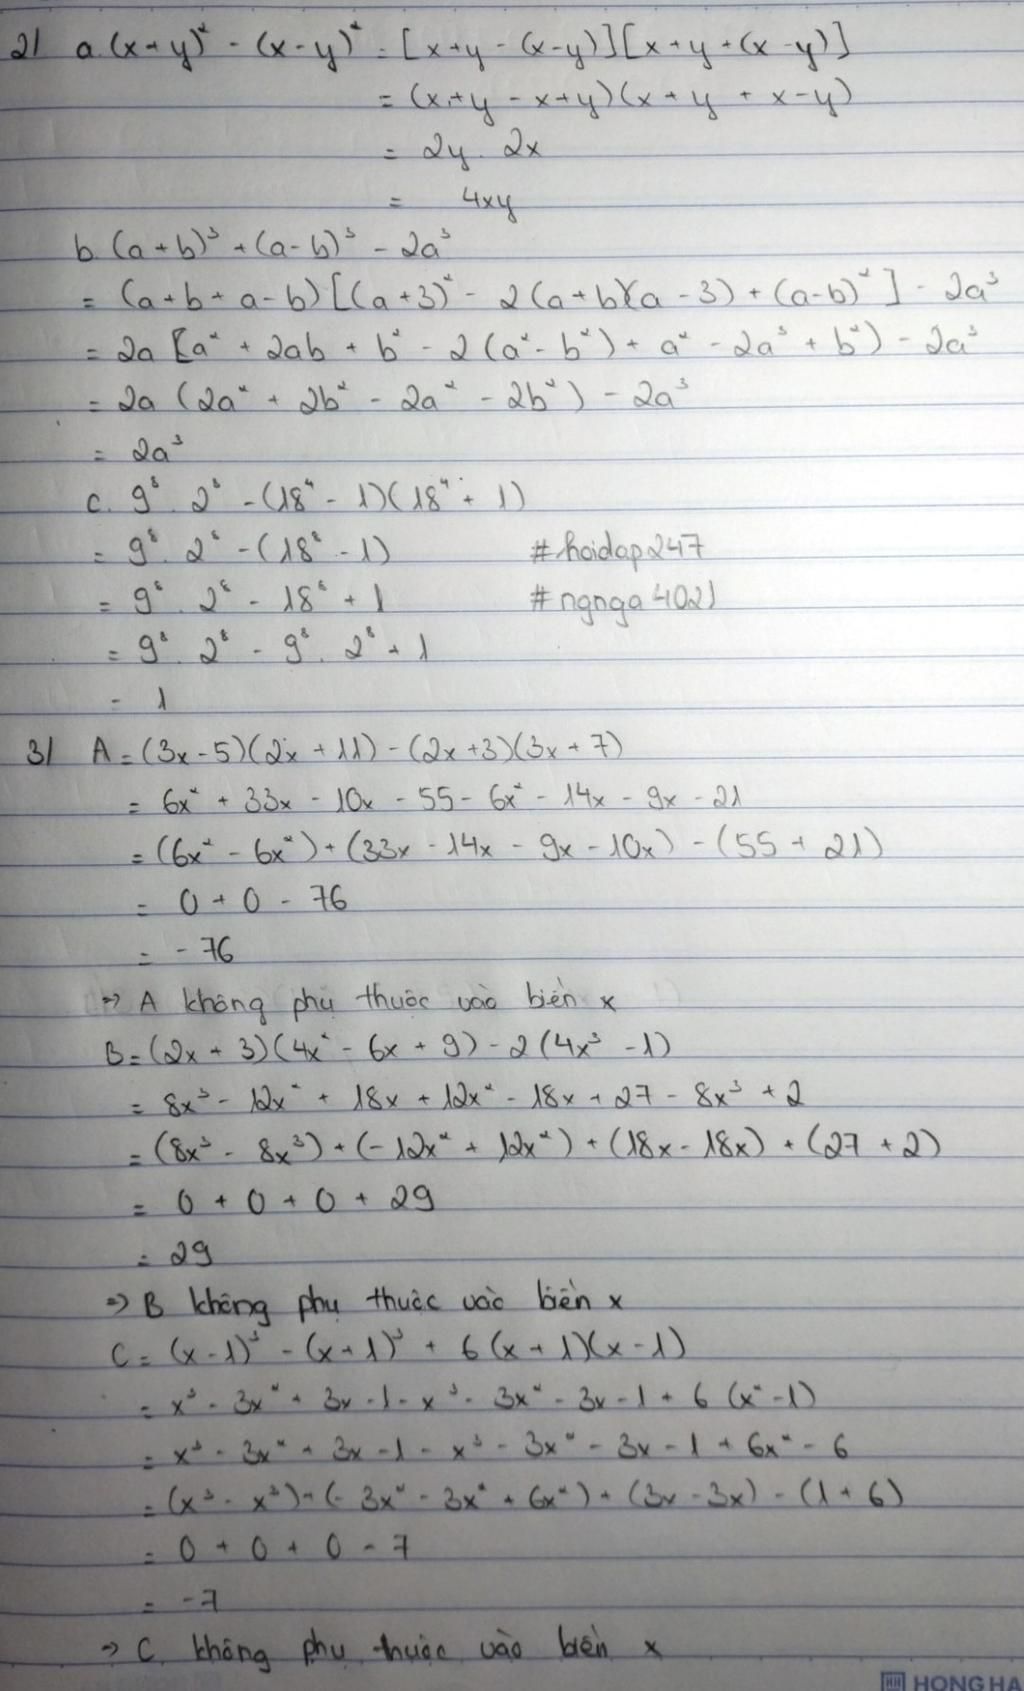 2/ a. (x+y)² - (x-y)² = [x+y - (x-y)][x+y+(x-y)]
= (x+y-x+y)(x+y+x-y)
= 2y. 2x
= 4xy
b. (a+b)³ + (a-b)³ - 2a³
= (a+b+a-b)[(a+3)² - 2(a+b)(a-3) + (a-b)²] - 2a³
= 2a [a² + 2ab + b² - 2(a²-b²) + a² - 2a³ + b²) - 2a³
= 2a (2a² + 2b² - 2a² - 2b²) - 2a³
= 2a³
c. 9⁸. 2⁸ - (18⁴ - 1)(18⁴ + 1)
= 9⁸. 2⁸ - (18⁸ - 1) #hoidap247
= 9⁸. 2⁸ - 18⁸ + 1 #ngnga4021
= 9⁸. 2⁸ - 9⁸. 2⁸ + 1
= 1
3/ A = (3x-5)(2x+11) - (2x+3)(3x+7)
= 6x² + 33x - 10x - 55 - 6x² - 14x - 9x - 21
= (6x² - 6x²) + (33x - 14x - 9x - 10x) - (55 + 21)
= 0 + 0 - 76
= - 76
=> A không phụ thuộc vào biến x
B = (2x + 3)(4x² - 6x + 9) - 2(4x³ - 1)
= 8x³ - 12x² + 18x + 12x² - 18x + 27 - 8x³ + 2
= (8x³ - 8x³) + (-12x² + 12x²) + (18x - 18x) + (27 + 2)
= 0 + 0 + 0 + 29
= 29
=> B không phụ thuộc vào biến x
C = (x-1)³ - (x+1)³ + 6(x+1)(x-1)
= x³ - 3x² + 3x - 1 - x³ - 3x² - 3x - 1 + 6 (x²-1)
= x³ - 3x² + 3x - 1 - x³ - 3x² - 3x - 1 + 6x² - 6
= (x³ - x³) + (-3x² - 3x² + 6x²) + (3x - 3x) - (1 + 6)
= 0 + 0 + 0 - 7
= -7
=> C không phụ thuộc vào biến x
HONG HA